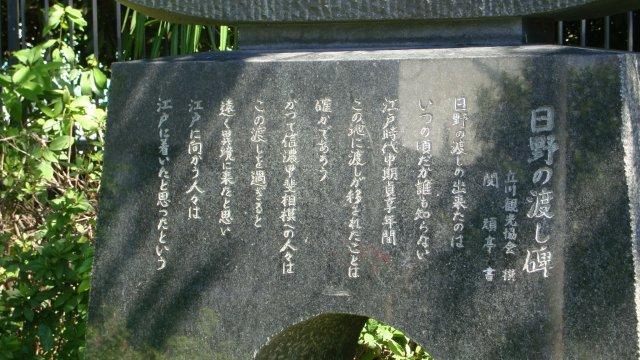 日野の渡し碑
立川観光協会 撰
関 頑亭 書
日野の渡しの出来たのは
いつの頃だか誰も知らない
江戸時代中期貞享年間
この地に渡しが移されたことは
確かであろう
かつて信濃甲斐相模への人々は
この渡しを過ぎると
遠く異境に来たと思い
江戸に向かう人々は
江戸に着いたと思ったという